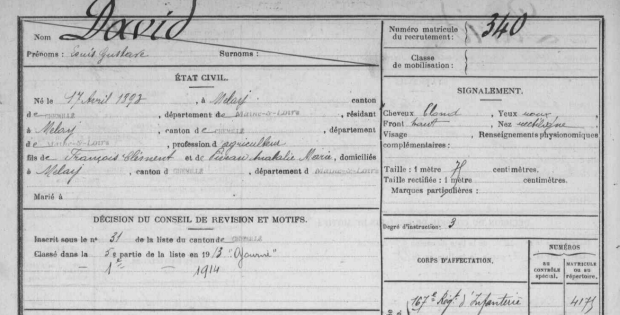 Nom David
Prénoms : Louis Gustave Surnoms :
Numéro matricule du recrutement : 340
Classe de mobilisation :
ÉTAT CIVIL.
Né le 17 Avril 1893, à Melay canton
de CHEMILLÉ, département de Maine-&-Loire, résidant
à Melay, canton de CHEMILLÉ, département
de Maine-&-Loire, profession d'agriculteur
fils de François Clément et de Anatalie Marie, domiciliés
à Melay, canton d CHEMILLÉ, département d Maine-&-Loire
Marié à
DÉCISION DU CONSEIL DE REVISION ET MOTIFS.
Inscrit sous le n° 31 de la liste du canton de CHEMILLÉ
Classé dans la 5e partie de la liste en 1913 "Ajourné"
— 1re — 1914
SIGNALEMENT.
Cheveux blond, Yeux
Front haut, Nez rectiligne
Visage Renseignements physionomiques
complémentaires :
Taille : 1 mètre 75 centimètres.
Taille rectifiée : 1 mètre centimètres.
Marques particulières :
Degré d'instruction : 3
CORPS D'AFFECTATION.
NUMÉROS
EN CONTRÔLE spécial.
MATRICULE OU AU répertoire.
167e Régt d'Infanterie
4175